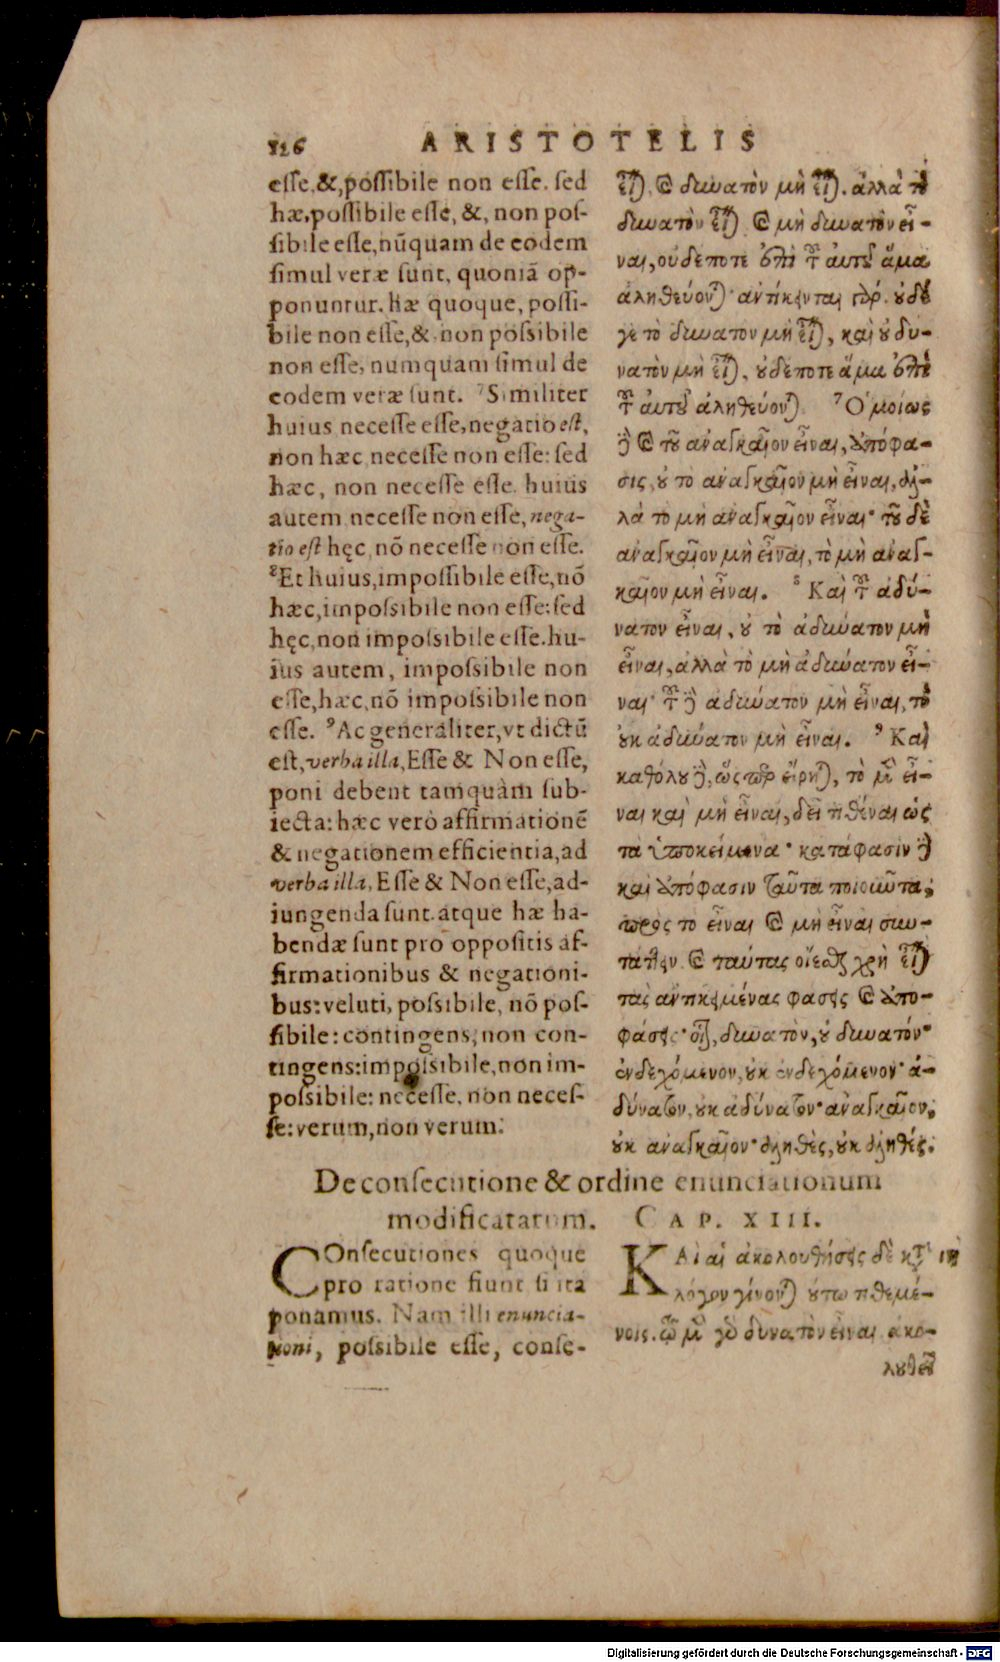 126 ARISTOTELIS
esse, &, possibile non esse. sed
hæ, possibile esse, &, non pos-
sibile esse, nũquam de eodem
simul veræ sunt, quoniã op-
ponuntur. hæ quoque, possi-
bile non esse, &, non possibile
non esse, numquam simul de
eodem veræ sunt. ⁷Similiter
huius necesse esse, negatio est,
non hæc necesse non esse: sed
hæc, non necesse esse. huius
autem necesse non esse, nega-
tio est hęc, nõ necesse non esse.
⁸Et huius, impossibile esse, nõ
hæc, impossibile non esse: sed
hęc, non impossibile esse. hu-
ius autem, impossibile non
esse, hæc, nõ impossibile non
esse. ⁹Ac generaliter, vt dictũ
est, verba illa, Esse & Non esse,
poni debent tamquàm sub-
iecta: hæc verò affirmationẽ
& negationem efficientia, ad
verba illa, Esse & Non esse, ad-
iungenda sunt. atque hæ ha-
bendæ sunt pro oppositis af-
firmationibus & negationi-
bus: veluti, possibile, nõ pos-
sibile: contingens, non con-
tingens: impossibile, non im-
possibile: necesse, non neces-
se: verum, non verum.
εἶναι, καὶ δυνατὸν μὴ εἶναι. ἀλλὰ τὸ
δυνατὸν εἶναι καὶ μὴ δυνατὸν εἶ-
ναι, οὐδέποτε ἐπὶ τοῦ αὐτοῦ ἅμα
ἀληθεύονται· ἀντίκεινται γάρ. οὐδέ
γε τὸ δυνατὸν μὴ εἶναι, καὶ οὐ δυ-
νατὸν μὴ εἶναι, οὐδέποτε ἅμα ἐπὶ
τοῦ αὐτοῦ ἀληθεύονται. ⁷Ὁμοίως
δὲ καὶ τοῦ ἀναγκαῖον εἶναι, ἀπόφα-
σις, οὐ τὸ ἀναγκαῖον μὴ εἶναι, ἀλ-
λὰ τὸ μὴ ἀναγκαῖον εἶναι· τοῦ δὲ
ἀναγκαῖον μὴ εἶναι, τὸ μὴ ἀναγ-
καῖον μὴ εἶναι. ⁸Καὶ τοῦ ἀδύ-
νατον εἶναι, οὐ τὸ ἀδύνατον μὴ
εἶναι, ἀλλὰ τὸ μὴ ἀδύνατον εἶ-
ναι· τοῦ δὲ ἀδύνατον μὴ εἶναι, τὸ
οὐκ ἀδύνατον μὴ εἶναι. ⁹Καὶ
καθόλου δὲ, ὥσπερ εἴρηται, τὸ μὲν εἶ-
ναι καὶ μὴ εἶναι, δεῖ τιθέναι ὡς
τὰ ὑποκείμενα· κατάφασιν δὲ
καὶ ἀπόφασιν ταῦτα ποιοῦντα,
πρὸς τὸ εἶναι καὶ μὴ εἶναι συν-
τάττειν. καὶ ταύτας οἴεσθαι χρὴ εἶναι
τὰς ἀντικειμένας φάσεις καὶ ἀπο-
φάσεις· οἷον, δυνατὸν, οὐ δυνατόν·
ἐνδεχόμενον, οὐκ ἐνδεχόμενον· ἀ-
δύνατον, οὐκ ἀδύνατον· ἀναγκαῖον,
οὐκ ἀναγκαῖον· ἀληθὲς, οὐκ ἀληθές.
De consecutione & ordine enunciationum
modificatarum. CAP. XIII.
COnsecutiones quoque
pro ratione fiunt si ita
ponamus. Nam illi enuncia-
tioni, possibile esse, conse-
ΚΑὶ αἱ ἀκολουθήσεις δὲ κατὰ
λόγον γίνονται οὕτω τιθεμέ-
νοις. τῷ μὲν γὰρ δυνατὸν εἶναι ἀκο-
λουθεῖ
Digitalisierung gefördert durch die Deutsche Forschungsgemeinschaft - DFG